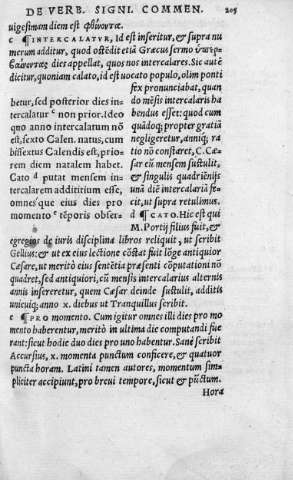 DE VERB. SIGNI. COMMEN. 205
uigesimam diem est φθίνοντας.
¶ INTERCALATUR, Id est inseritur, & supra nu
merum additur, quod ostēdit etiā Græcus sermo
dies appellat, quos nos intercalares. Sic autē
dicitur, quoniam calato, id est uocato populo, olim ponti
fex pronunciabat, quan
betur, sed posterior dies in= do mēsis intercalaris ha
tercalatur c non prior. Ideo bendus esset: quod cum
quo anno intercalarum nō quādoq; propter gratiā
est, sexto Calen. natus, cum negligeretur, anniq; ra
bissextus Calendis est, prio= tio nō constaret, C. Cæ=
rem diem natalem habet. sar cū mensem sustulit,
Cato d putat mensem in= & singulis quadriēnijs
tercalarem additium esse, unā diē intercalariā fe=
omnes que eius dies pro cit, ut supra retulimus.
momento e tēporis obser= d ¶ CATO. Hic est qui
M. Portij filius fuit, &
egregios de iuris disciplina libros reliquit, ut scribit
Gellius: & ut ex eius lectione cōstat fuit lōge antiquior
Cæsare, ut meritò eius sentētia præsenti cōputationi nō
quadret, sed antiquiori, cū mensis intercalarius alternis
annis insereretur, quem Cæsar deinde sustulit, additis
unicuiq; anno x. diebus ut Tranquillus scribit.
e ¶ PRO momento. Cum igitur omnes illi dies pro mo
mento haberentur, meritò in ultima die computandi fue
rant: sicut hodie duo dies pro uno habentur. Sanè scribit
Accursius, x. momenta punctum conficere, & quatuor
puncta horam. Latini tamen autores, momentum sim=
pliciter accipiunt, pro breui tempore, sicut & pūctum.
Hora